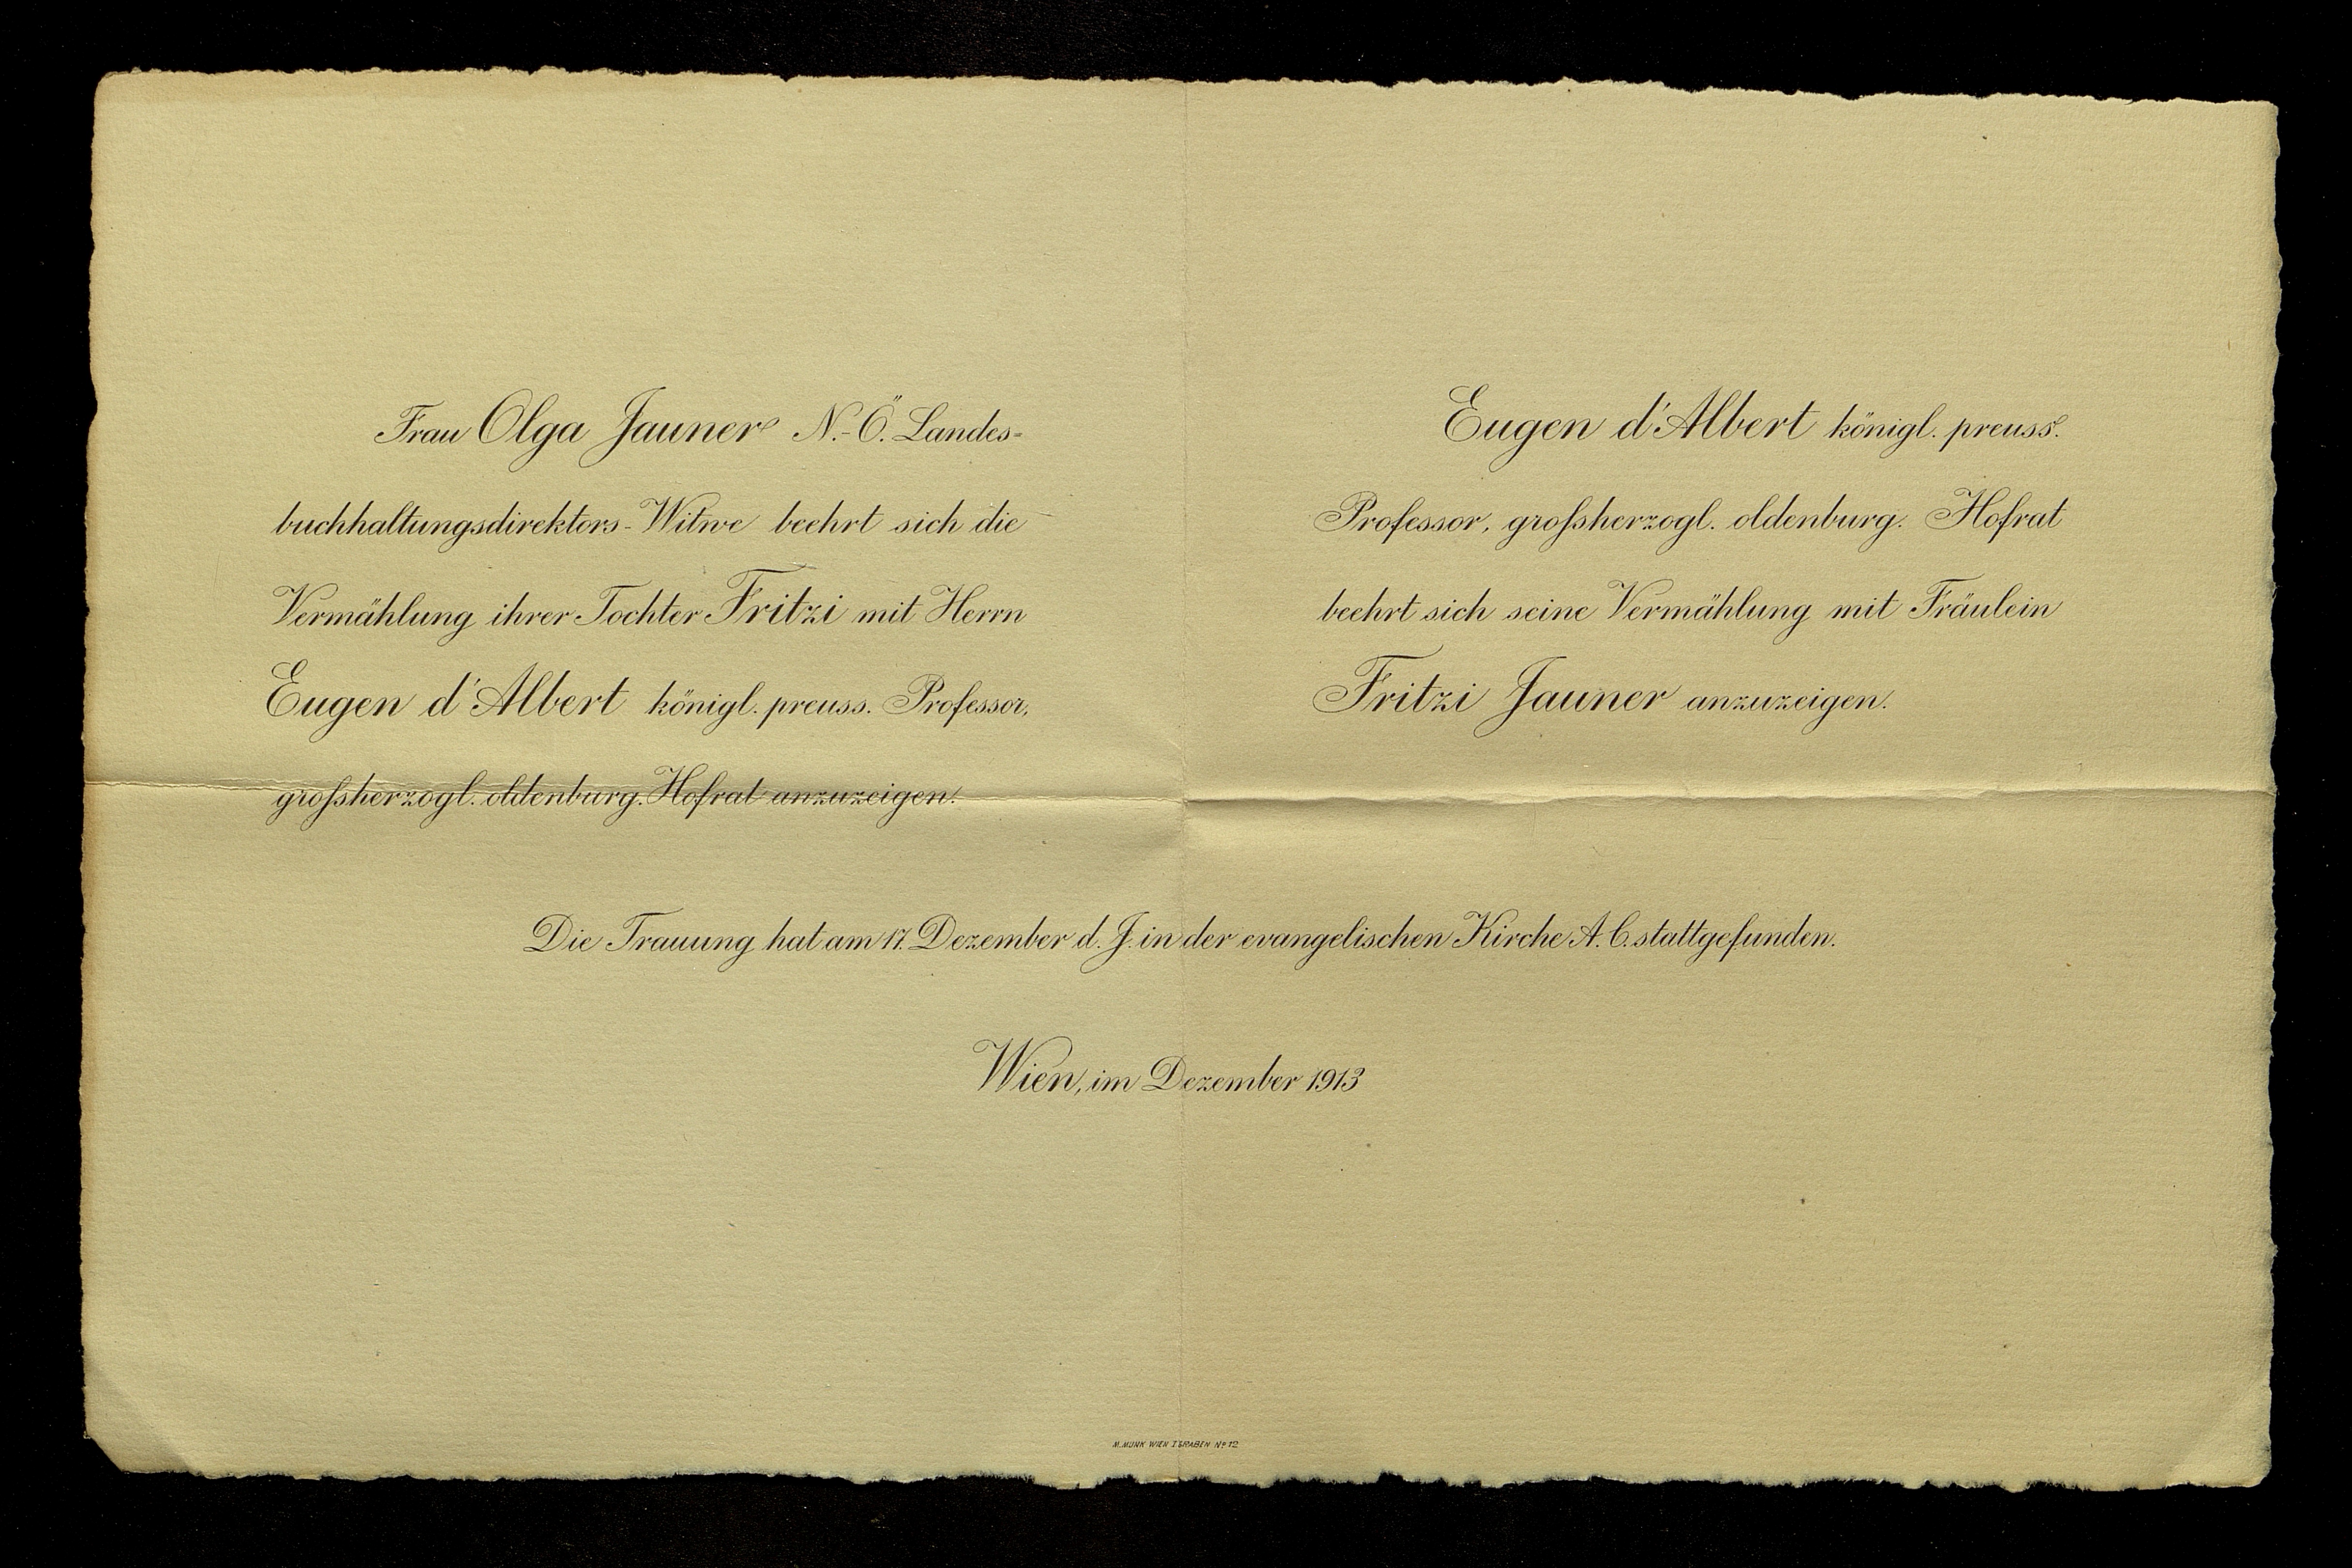 Frau Olga Jauner N.-Ö. Landes-
buchhaltungsdirektors-Witwe beehrt sich die
Vermählung ihrer Tochter Fritzi mit Herrn
Eugen d'Albert königl. preuss. Professor,
grofsherzogl. oldenburg. Hofrat anzuzeigen.
Eugen d'Albert königl. preuss.
Professor, grofsherzogl. oldenburg. Hofrat
beehrt sich seine Vermählung mit Fräulein
Fritzi Jauner anzuzeigen.
Die Trauung hat am 17. Dezember d. J. in der evangelischen Kirche A. C. stattgefunden.
Wien, im Dezember 1913
M. MUNK WIEN I GRABEN No 12